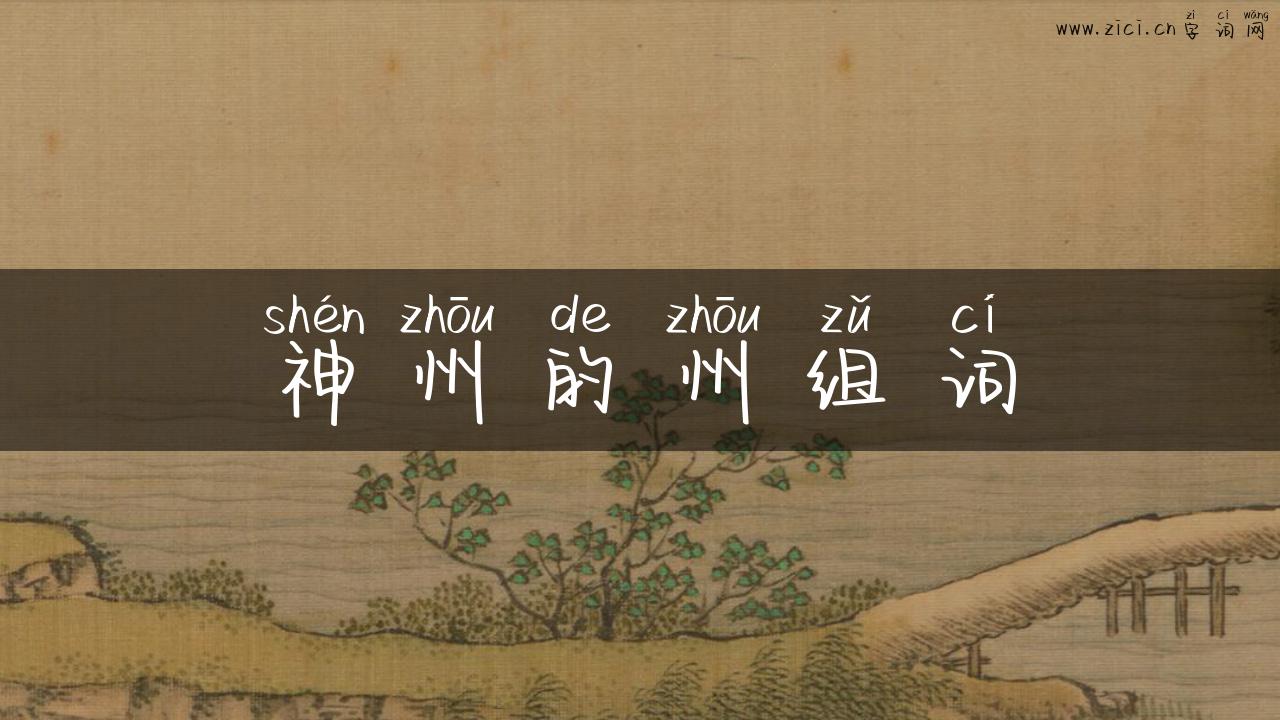 zì cí wǎng
www.zici.cn 字 词 网
shén zhōu de zhōu zǔ cí
神 州 的 州 组 词